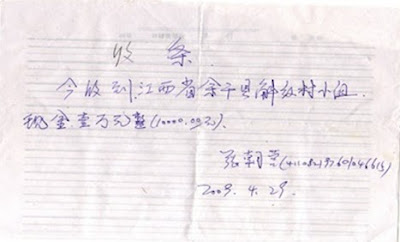 收条
今收到江西省余干县解放村小组
现金壹万元整(10000.00元).
张朝
2009.4.29.